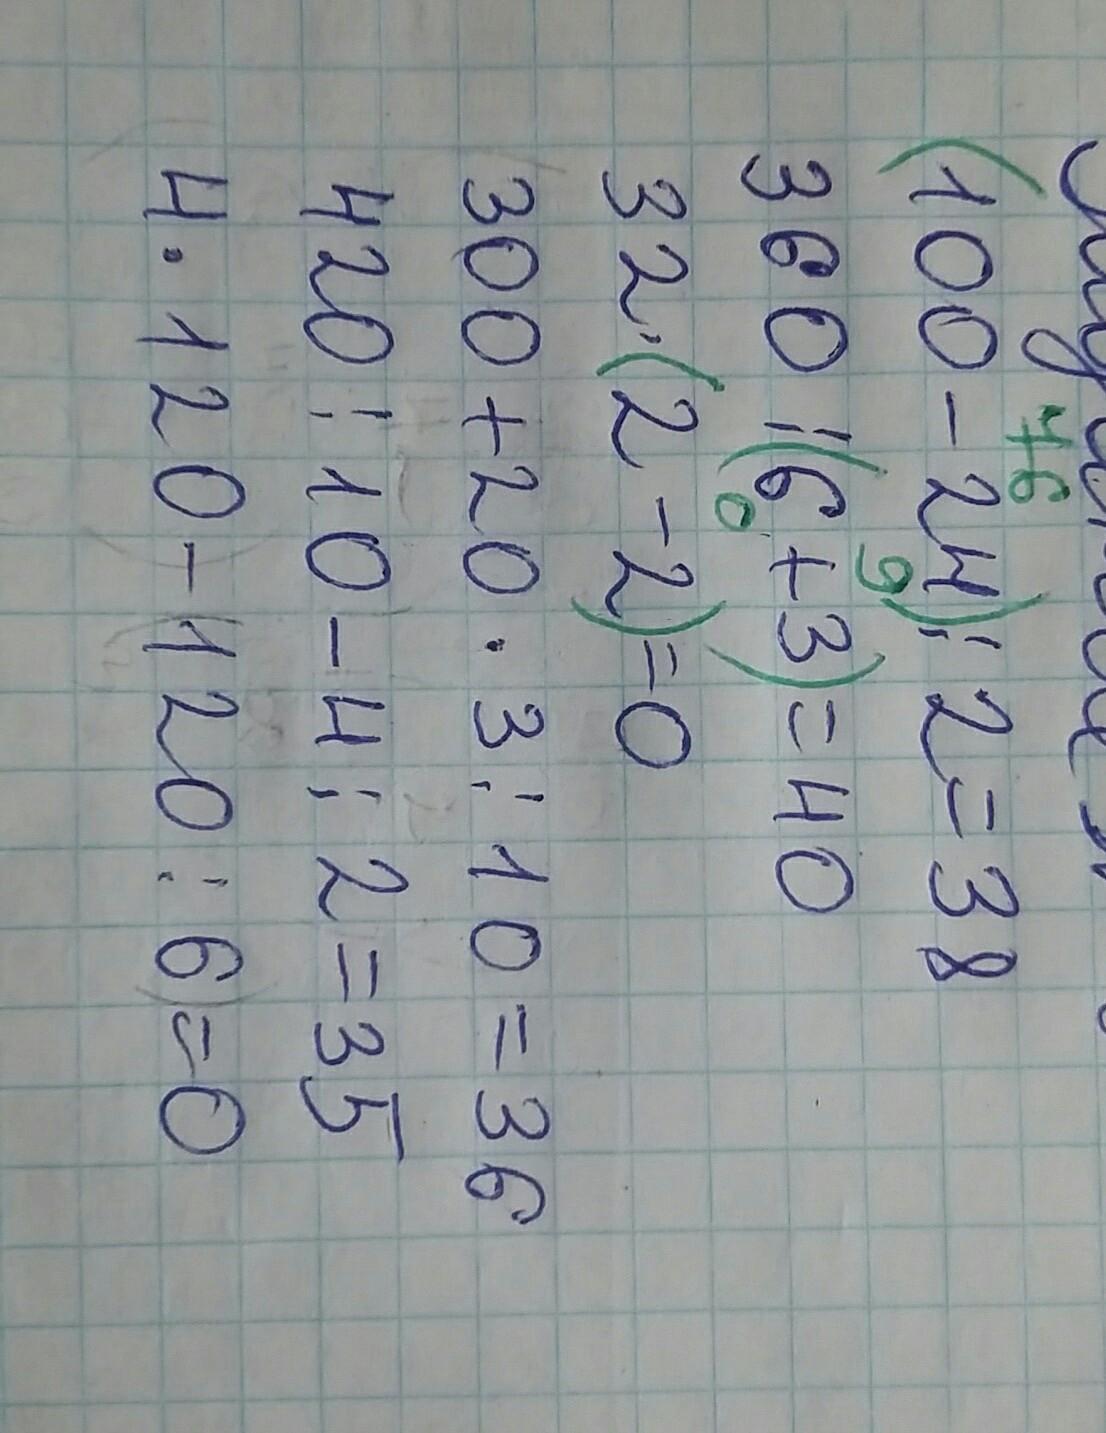 76
(100-24):2=38
9
360:(6+3)=40
0
32·(2-2)=0
300+20·3:10=36
420:10-4:2=35
4·120-120:6)=0